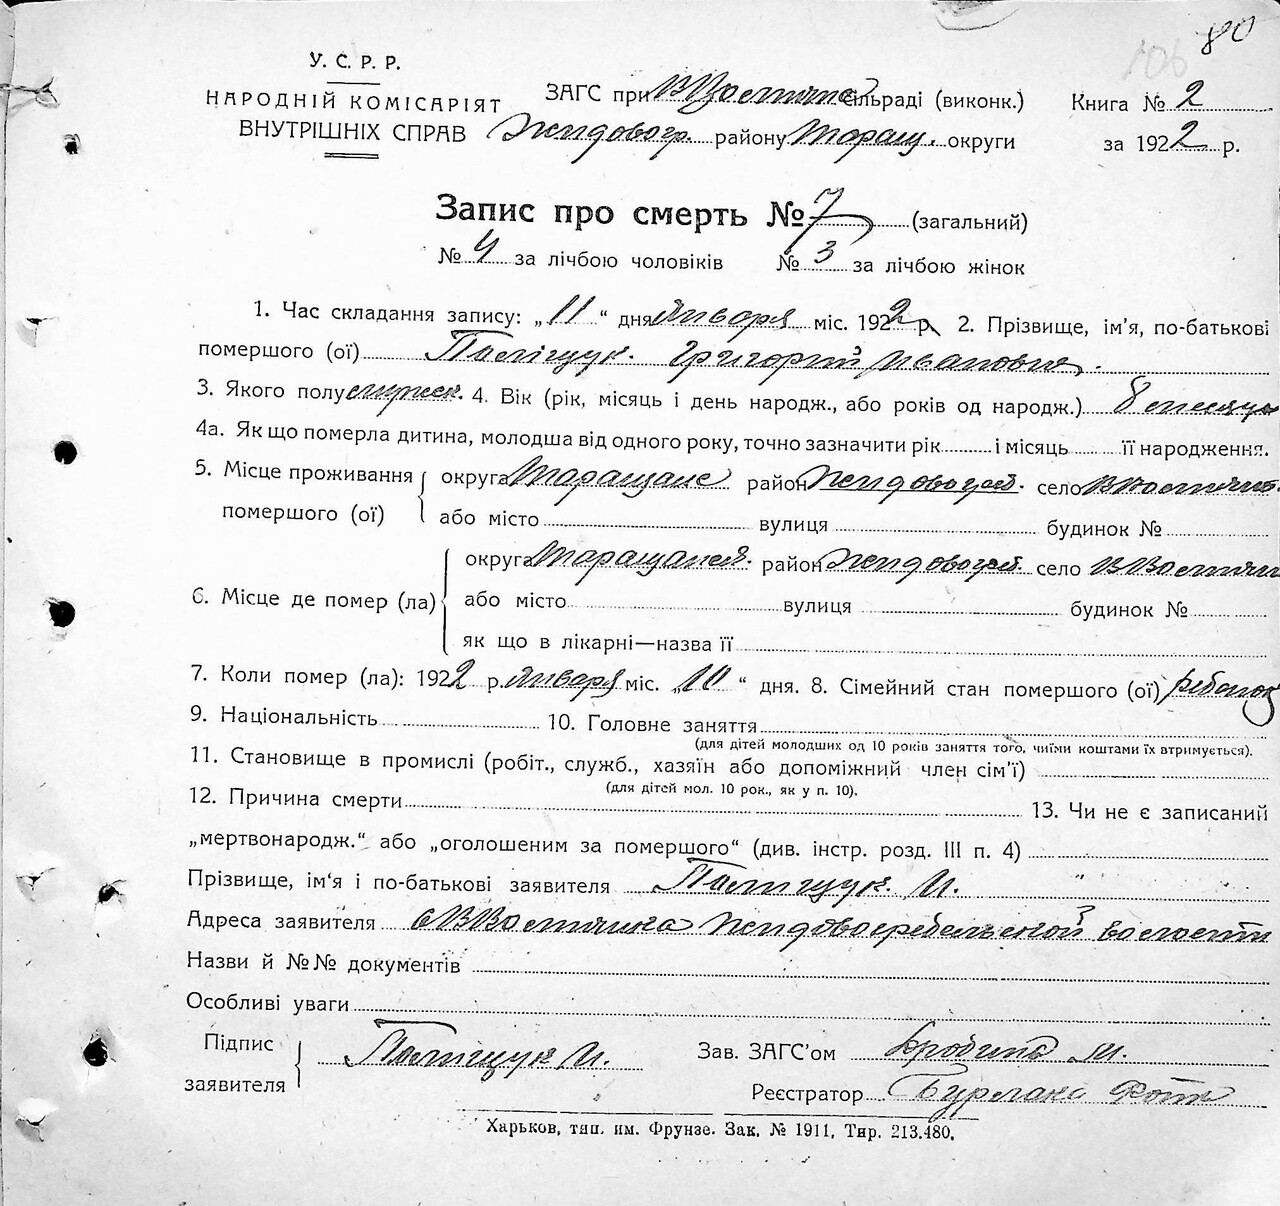 80
106
У. С. Р. Р.
НАРОДНІЙ КОМІСАРІЯТ
ВНУТРІШНІХ СПРАВ
ЗАГС при сільраді (виконк.)
Жидовогр. району Таращ. округи
Книга № 2
за 1922 р.
Запис про смерть № 7 (загальний)
№ 4 за лічбою чоловіків № 3 за лічбою жінок
1. Час складання запису: „11“ дня Января міс. 1922 р. 2. Прізвище, ім'я, по-батькові
помершого (ої) Паліщук Григорий Иванович.
3. Якого полу мужск. 4. Вік (рік, місяць і день народж., або років од народж.) 8 месяце
4а. Як що померла дитина, молодша від одного року, точно зазначити рік і місяць її народження.
5. Місце проживання помершого (ої) округа Таращанс район Жидовогреб. село
або місто вулиця будинок №
6. Місце де помер (ла) округа Таращанск. район Жидовогреб. село
або місто вулиця будинок №
як що в лікарні—назва її
7. Коли помер (ла): 1922 р. Января міс. „10“ дня. 8. Сімейний стан помершого (ої) ребенок
9. Національність 10. Головне заняття
(для дітей молодших од 10 років заняття того, чиїми коштами їх втримується).
11. Становище в промислі (робіт., служб., хазяїн або допоміжний член сім'ї)
(для дітей мол. 10 рок., як у п. 10).
12. Причина смерти 13. Чи не є записаний
„мертвонародж.“ або „оголошеним за помершого“ (див. інстр. розд. III п. 4)
Прізвище, ім'я і по-батькові заявителя Палищук И.
Адреса заявителя Жидовогребельской волости
Назви й №№ документів
Особливі уваги
Підпис заявителя Палищук И.
Зав. ЗАГС'ом М.
Реєстратор Бурлака
Харьков, тип. им. Фрунзе. Зак. № 1911, Тир. 213.480.